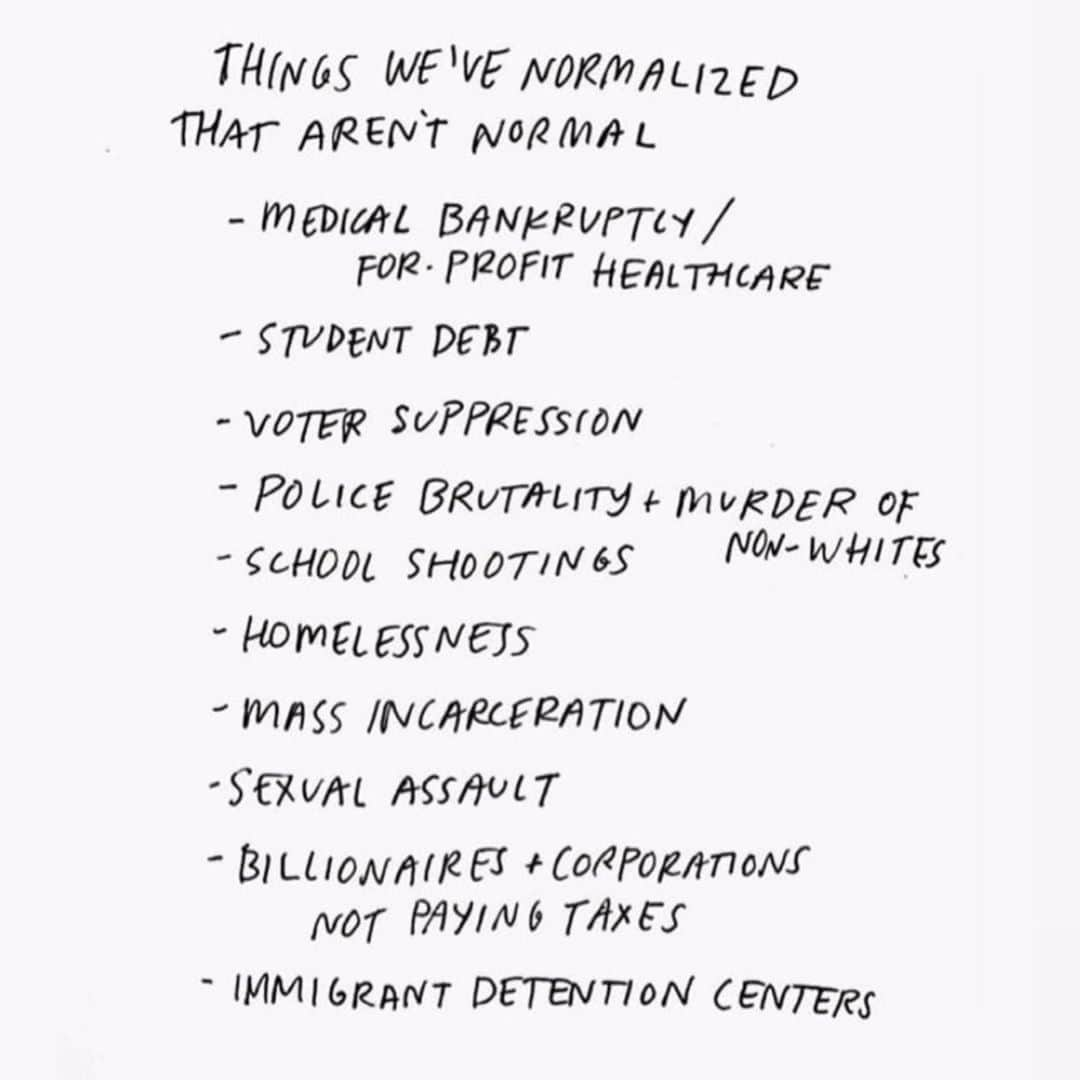 THINGS WE'VE NORMALIZED
THAT AREN'T NORMAL
- MEDICAL BANKRUPTCY /
FOR-PROFIT HEALTHCARE
- STUDENT DEBT
- VOTER SUPPRESSION
- POLICE BRUTALITY + MURDER OF
NON-WHITES
- SCHOOL SHOOTINGS
- HOMELESSNESS
- MASS INCARCERATION
- SEXUAL ASSAULT
- BILLIONAIRES + CORPORATIONS
NOT PAYING TAXES
- IMMIGRANT DETENTION CENTERS